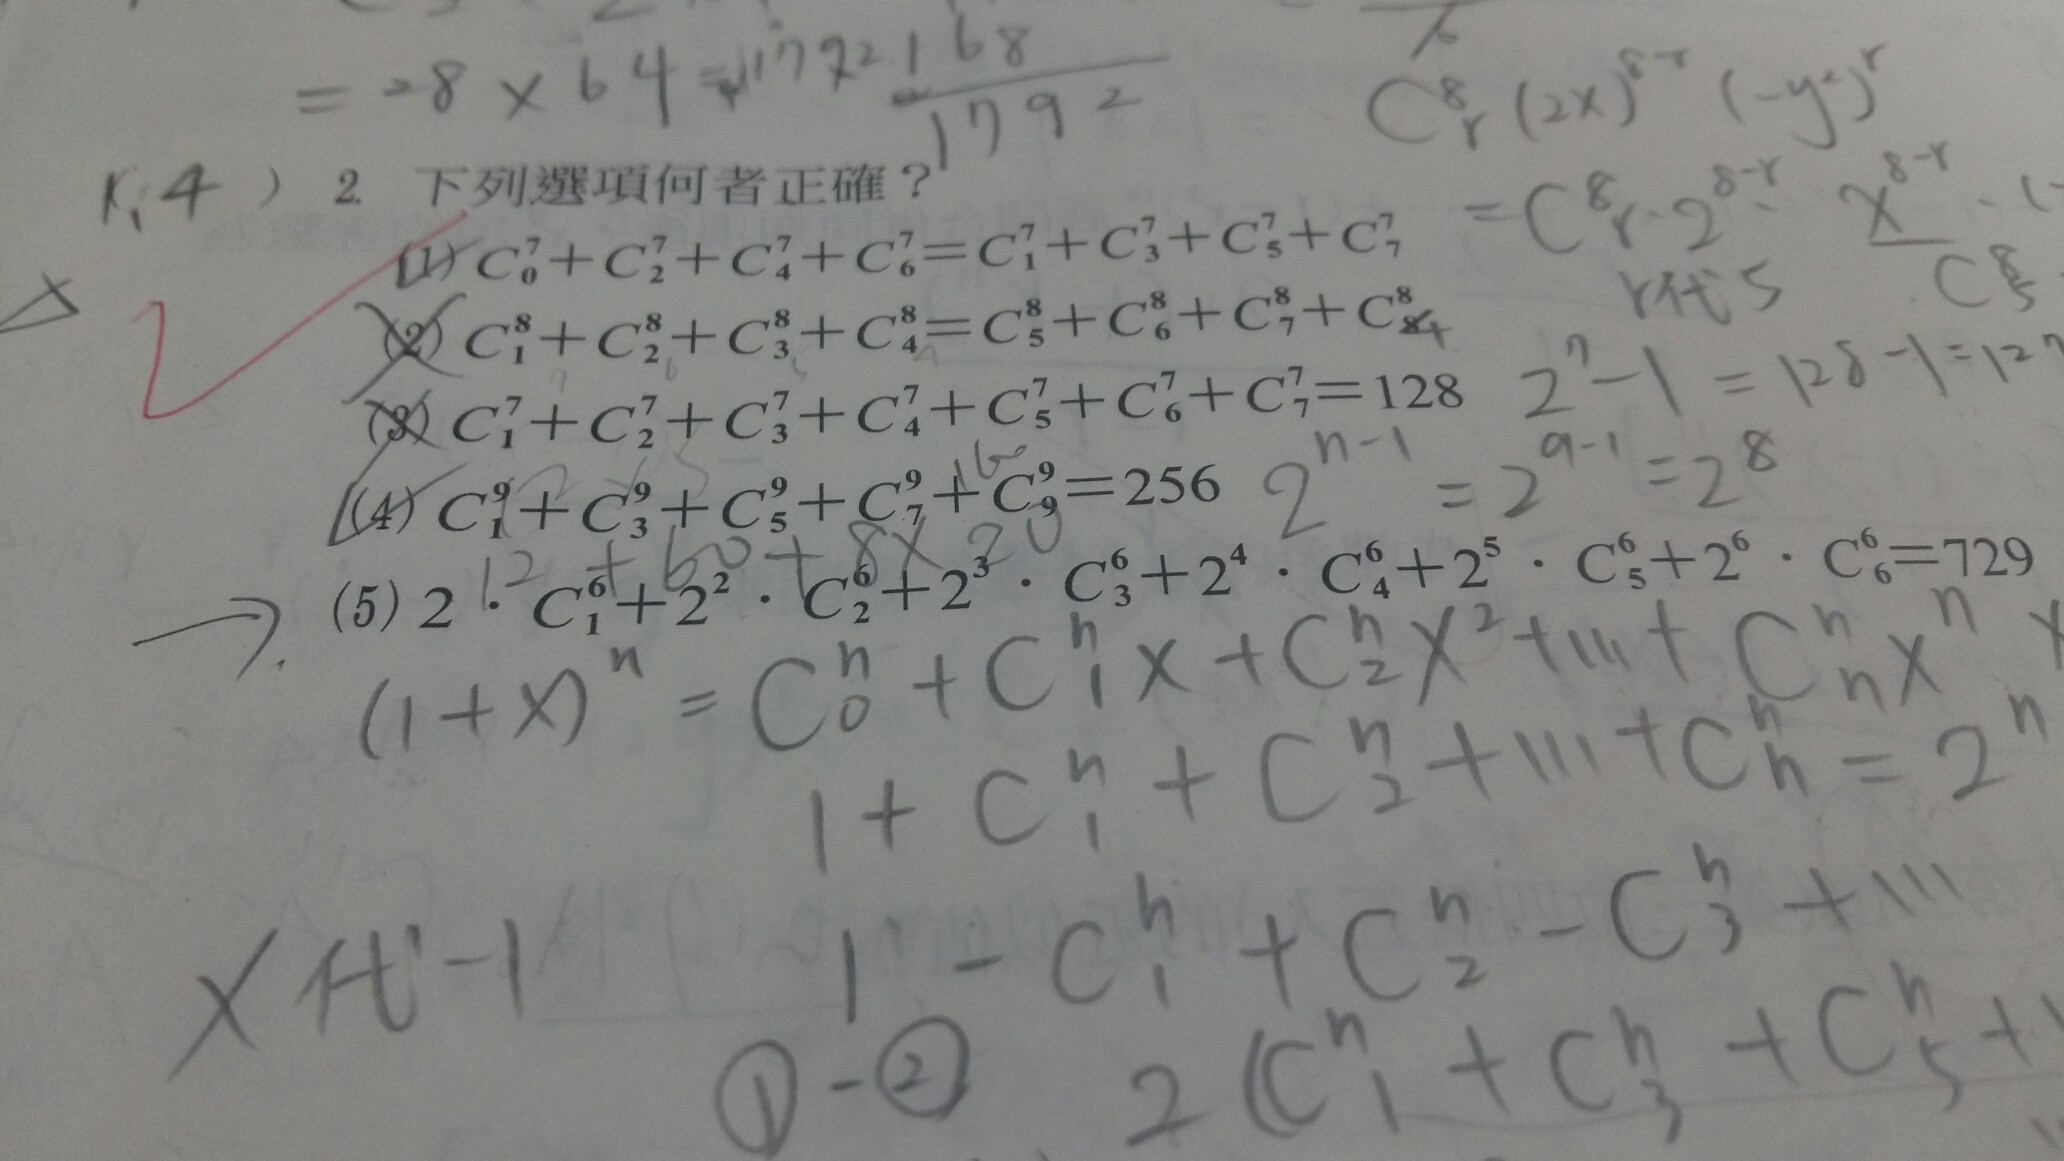 = 28 × 64 = 1792 168
1792
C⁸ᵣ (2x)⁸⁻ʳ (-y²)ʳ
= C⁸ᵣ · 2⁸⁻ʳ · x⁸⁻ʳ · (-
r代5 C⁸₅
1,4 ) 2. 下列選項何者正確？
(1) C⁷₀+C⁷₂+C⁷₄+C⁷₆=C⁷₁+C⁷₃+C⁷₅+C⁷₇
(2) C⁸₁+C⁸₂+C⁸₃+C⁸₄=C⁸₅+C⁸₆+C⁸₇+C⁸₈
(3) C⁷₁+C⁷₂+C⁷₃+C⁷₄+C⁷₅+C⁷₆+C⁷₇=128 2⁷-1 = 128-1=127
(4) C⁹₁+C⁹₃+C⁹₅+C⁹₇+C⁹₉=256 2ⁿ⁻¹ = 2⁹⁻¹ = 2⁸
12 + 60 + 8× 20
(5) 2 · C⁶₁+2² · C⁶₂+2³ · C⁶₃+2⁴ · C⁶₄+2⁵ · C⁶₅+2⁶ · C⁶₆=729
(1+x)ⁿ = Cⁿ₀ + Cⁿ₁x + Cⁿ₂x² + ... + Cⁿₙxⁿ
1 + Cⁿ₁ + Cⁿ₂ + ... + Cⁿₙ = 2ⁿ
x代-1 1 - Cⁿ₁ + Cⁿ₂ - Cⁿ₃ + ...
① - ② 2(Cⁿ₁ + Cⁿ₃ + Cⁿ₅ +